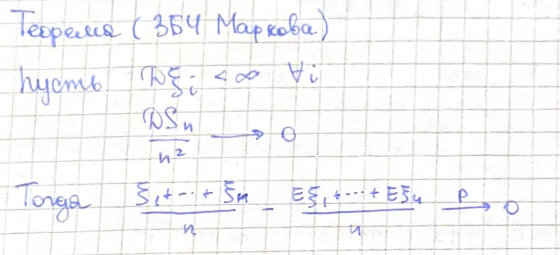 Теорема (ЗБЧ Маркова)
Пусть Dξi < ∞ ∀i
DSn / n² → 0
Тогда (ξ1 + ... + ξn) / n − (Eξ1 + ... + Eξn) / n →p 0